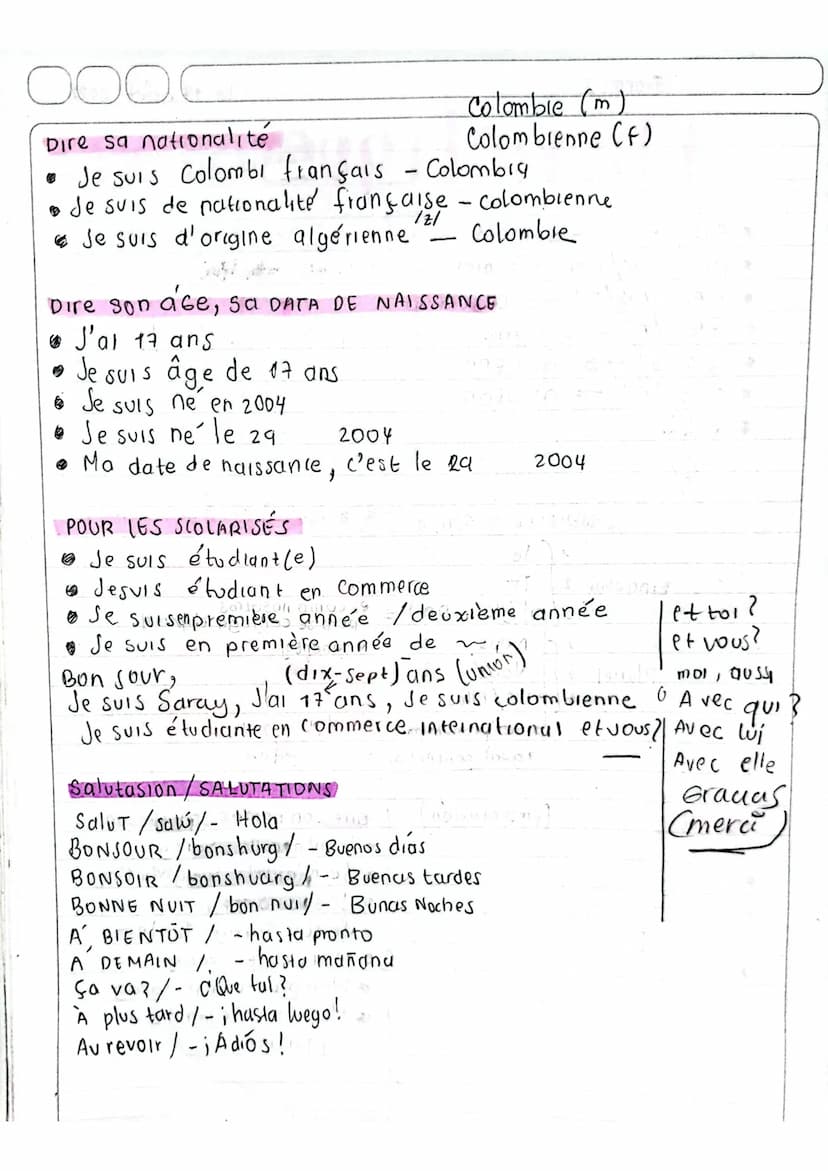 Colombie (m)
Colombienne (f)
Dire sa nationalité
Je suis Colombi français - Colombia
Je suis de nationalité française - colombienne
/z/
Je suis d'origine algérienne — Colombie
Dire son áGe, sa DATA DE NAISSANCE
J'ai 17 ans
Je suis âge de 17 ans
Je suis né en 2004
Je suis né le 29 2004
Ma date de naissance, c'est le 29 2004
POUR LES SCOLARISÉS
Je suis étudiant(e)
Jesuis étudiant en Commerce
Je suisenpremière année / deuxième année
Je suis en première année de
Bon jour, (dix-sept) ans
Je suis Saray, J'ai 17 ans, Je suis colombienne
Je suis étudiante en Commerce International et vous?
et toi?
et vous?
moi, aussy
Avec qui?
Avec lui
Avec elle
Gracias
(merci)
Salutasion / SALUTATIONS
SaluT / salú / - Hola
BONJOUR / bonshurg / - Buenos días
BONSOIR / bonshuarg / - Buenas tardes
BONNE NUIT / bon nui / - Bunas Noches
A´ BIENTÔT / - hasta pronto
A´ DEMAIN / - hasta mañana
Ça va? / - ¿Que tal?
À plus tard / - ¡hasta luego!
Au revoir / - ¡Adiós!